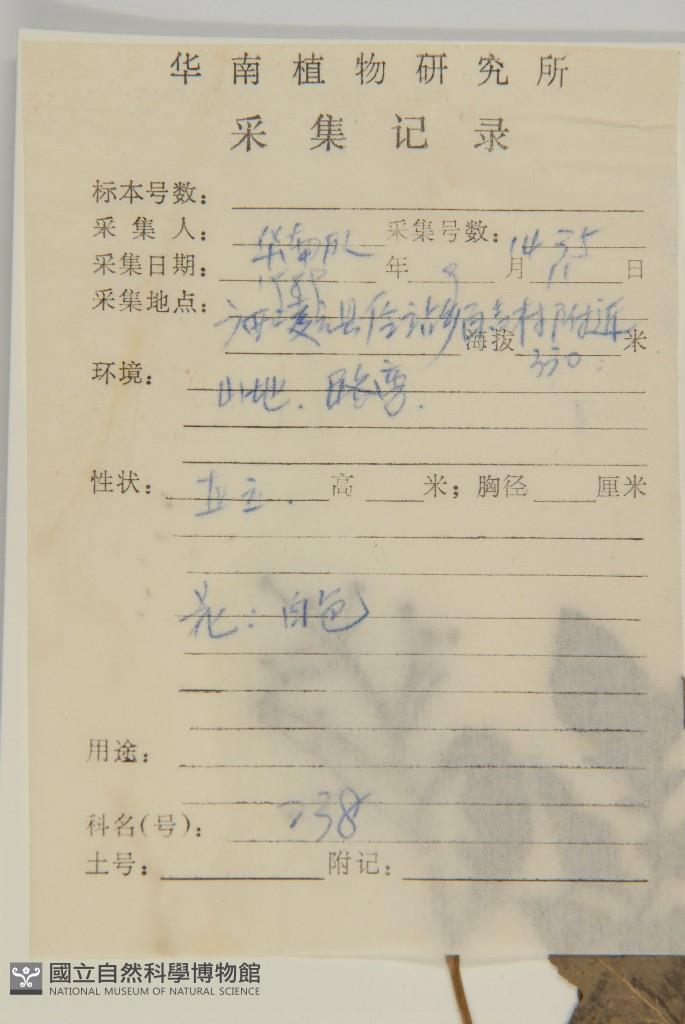 华南植物研究所
采集记录
标本号数：
采集人： 华南队 采集号数： 1435
采集日期： 年 9 月 11 日
采集地点： 县 村附近
海拔 350 米
环境： 山地．路旁．
性状： 直立． 高 米；胸径 厘米
花：白色
用途：
科名(号)： 238
土号： 附记：
國立自然科學博物館
NATIONAL MUSEUM OF NATURAL SCIENCE